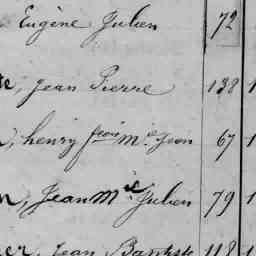 Eugène Julien 72
Jean Pierre 138 1
henry fcois Mie Jean 67 1
Jean Mie Julien 79 1
er, Jean Baptiste 118 1